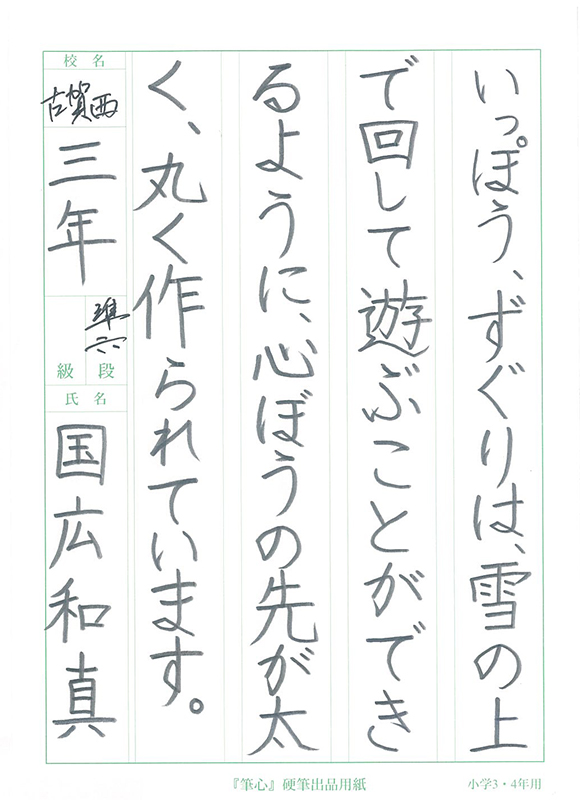 いっぽう、ずぐりは、雪の上
で回して遊ぶことができ
るように、心ぼうの先が太
く、丸く作られています。
校名
古賀西
三年
準六
級 段
氏名
国広和真
『筆心』硬筆出品用紙
小学3・4年用